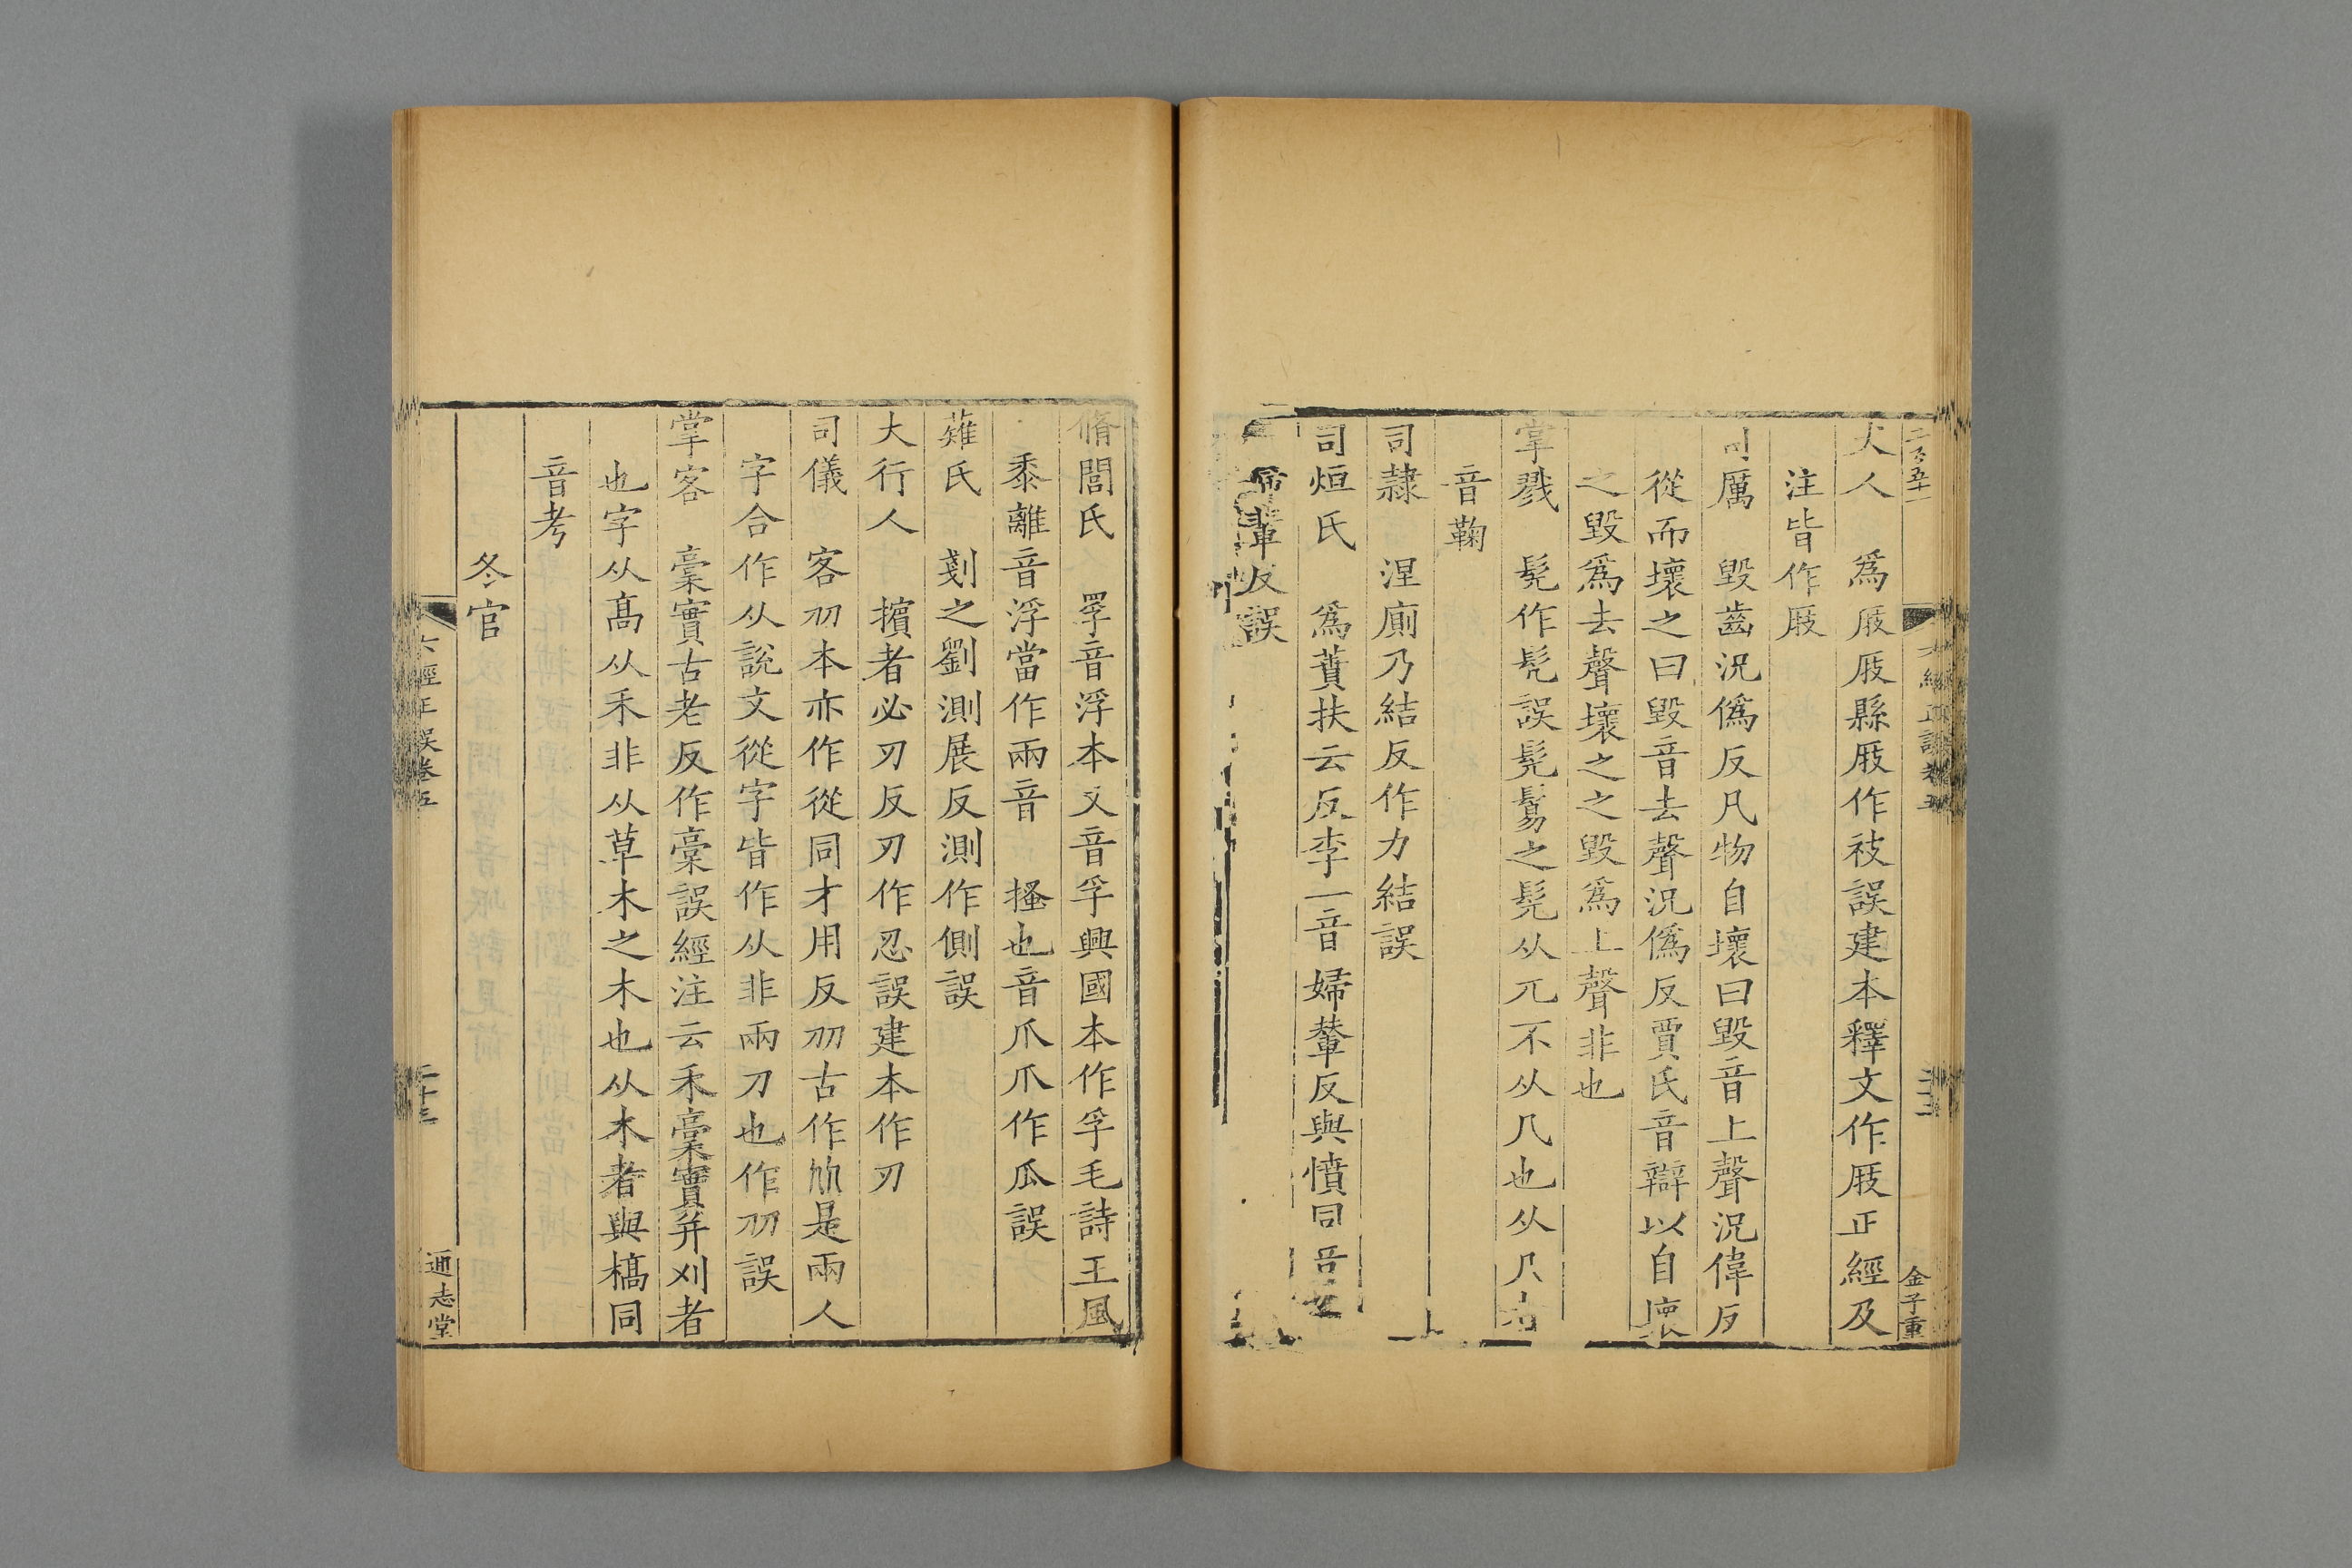 犬人　爲庪庪縣庪作衼誤建本釋文作庪正經及
注皆作庪
司厲　毀齒況僞反凡物自壞曰毀音上聲況偉反
從而壞之曰毀音去聲況僞反賈氏音辯以自壞
之毀爲去聲壞之之毀爲上聲非也
掌戮　髡作髠誤髡鬄之髡从兀不从几也从几
音鞠
司隸　涅廁乃結反作力結誤
司烜氏　爲蕡扶云反李一音婦輦反與憤同
輩反誤
脩閭氏　罦音浮本又音孚興國本作孚毛詩王風
黍離音浮當作兩音　搔也音爪爪作瓜誤
薙氏　剗之劉測展反測作側誤
大行人　擯者必刃反刃作忍誤建本作刃
司儀　客刅本亦作從同才用反刅古作㐺是兩人
字合作从說文從字皆作从非兩刀也作刅誤
掌客　稾實古老反作槀誤經注云禾稾實并刈者
也字从高从禾非从草木之木也从木者與槁同
音考
冬官
六經正誤卷五
二十三
通志堂
金子重